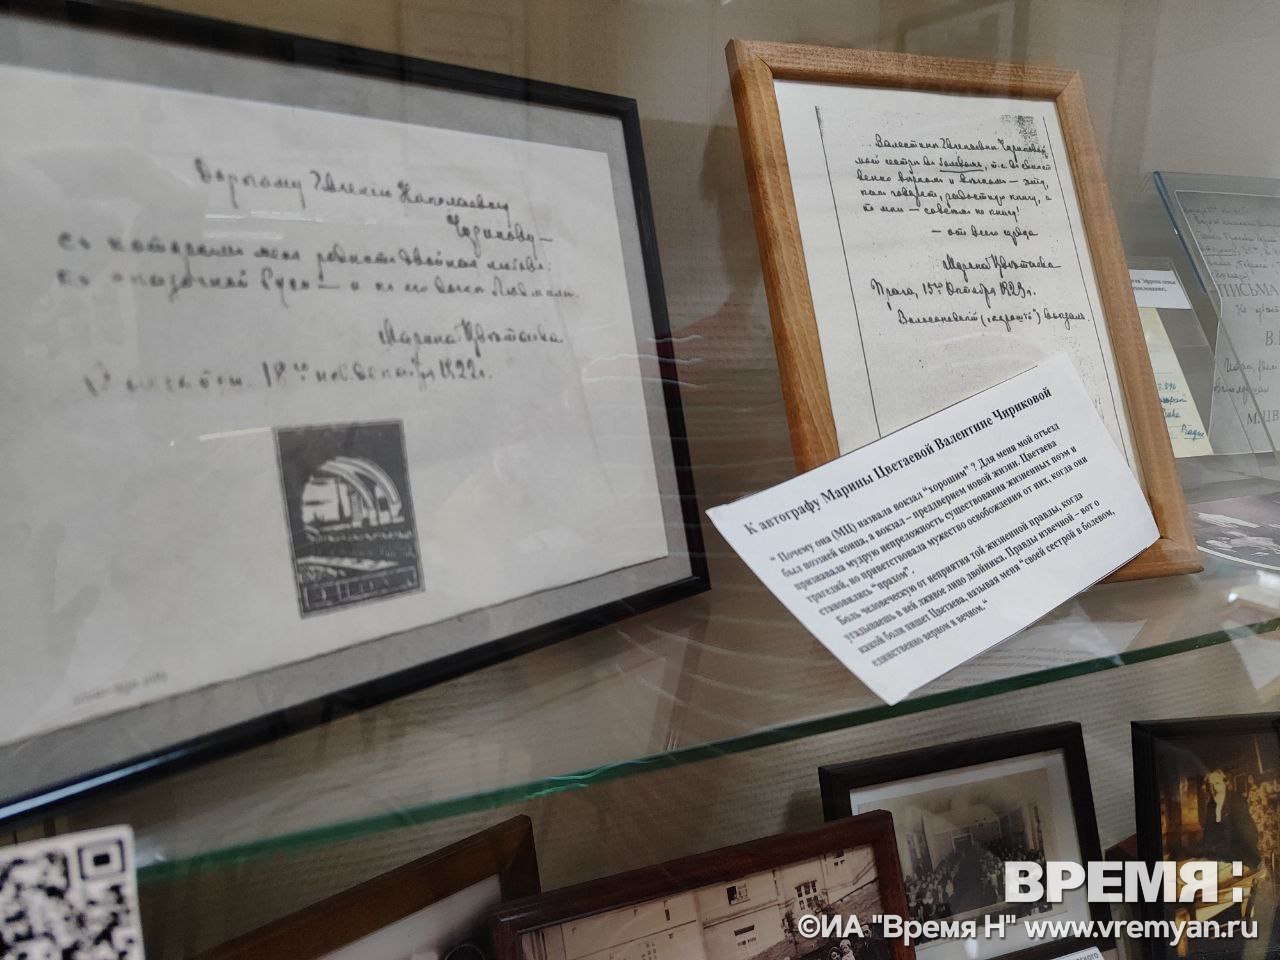 Дорогому Евгенiю Николаевичу
Чирикову –
съ которымъ меня роднитъ двойная любовь:
къ сказочной Руси – и къ его дочке Людмиле.
Марина Цветаева
18го 1922г.
Валентине Евгеньевне Чириковой,
моей сестре въ болевомъ, т.е. въ единст
венно верномъ и вечномъ – эту,
какъ говорятъ, радостную книгу, а
по мне – совсемъ не книгу!
– отъ всего сердца
Марина Цветаева
Прага, 15го Октября 1923г.
("хорошiй") вокзалъ
К автографу Марины Цветаевой Валентине Чириковой
" Почему она (МЦ) назвала вокзал "хорошим" ? Для меня мой отъезд
был поэзией конца, а вокзал – преддверием новой жизни. Цветаева
признавала мудрую непреложность существования жизненных поэм и
трагедий, но приветствовала мужество освобождения от них, когда они
становились "прахом".
Боль человеческую от неприятия той жизненной правды, когда
угадываешь в ней лживое лицо двойника. Правды извечной – вот о
какой боли пишет Цветаева, называя меня "своей сестрой в болевом,
единственно верном и вечном."
ПИСЬМА
ВРЕМЯ:
©ИА "Время Н" www.vremyan.ru